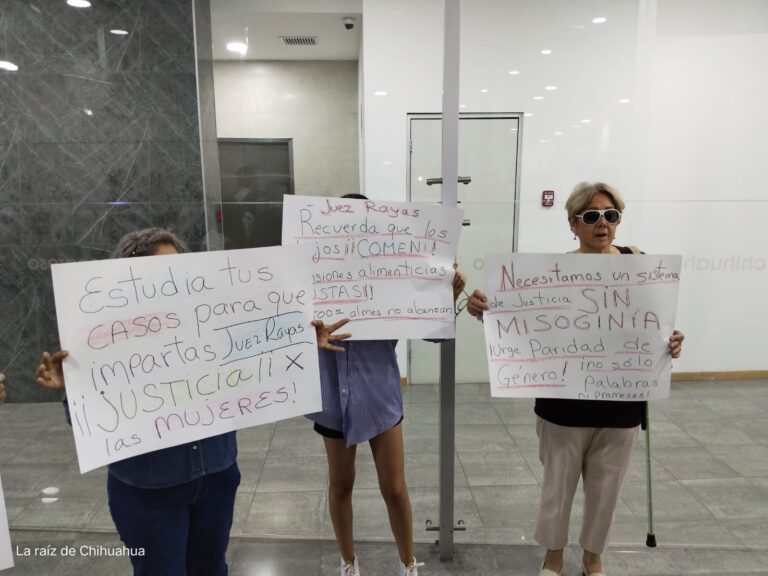 Estudia tus
casos para que
impartas Juez Rayas
¡¡JUSTICIA!! X
las MUJERES!
- Juez Rayas
Recuerda que los
jos ¡¡COMEN!!
siones alimenticias
STAS!!
almes no alcanzan
Necesitamos un sistema
de Justicia SIN
MISOGINÍA
¡Urge Paridad de
Género! ¡no sólo
palabras
ni promesas!
chihuahua
La raíz de Chihuahua